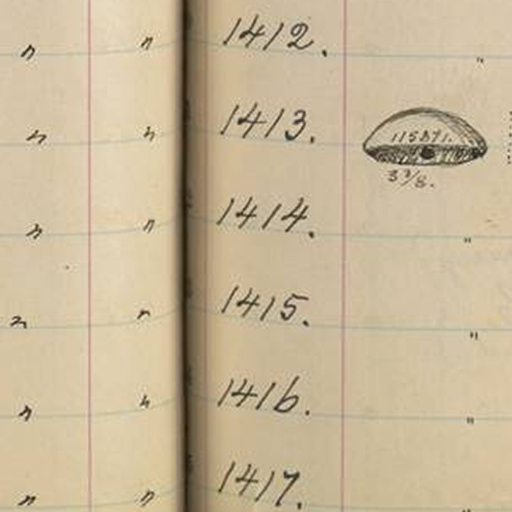 " " 1412. "
" " 1413. 115871.
3 3/8.
" " 1414. "
" " 1415. "
" " 1416. "
" " 1417. "